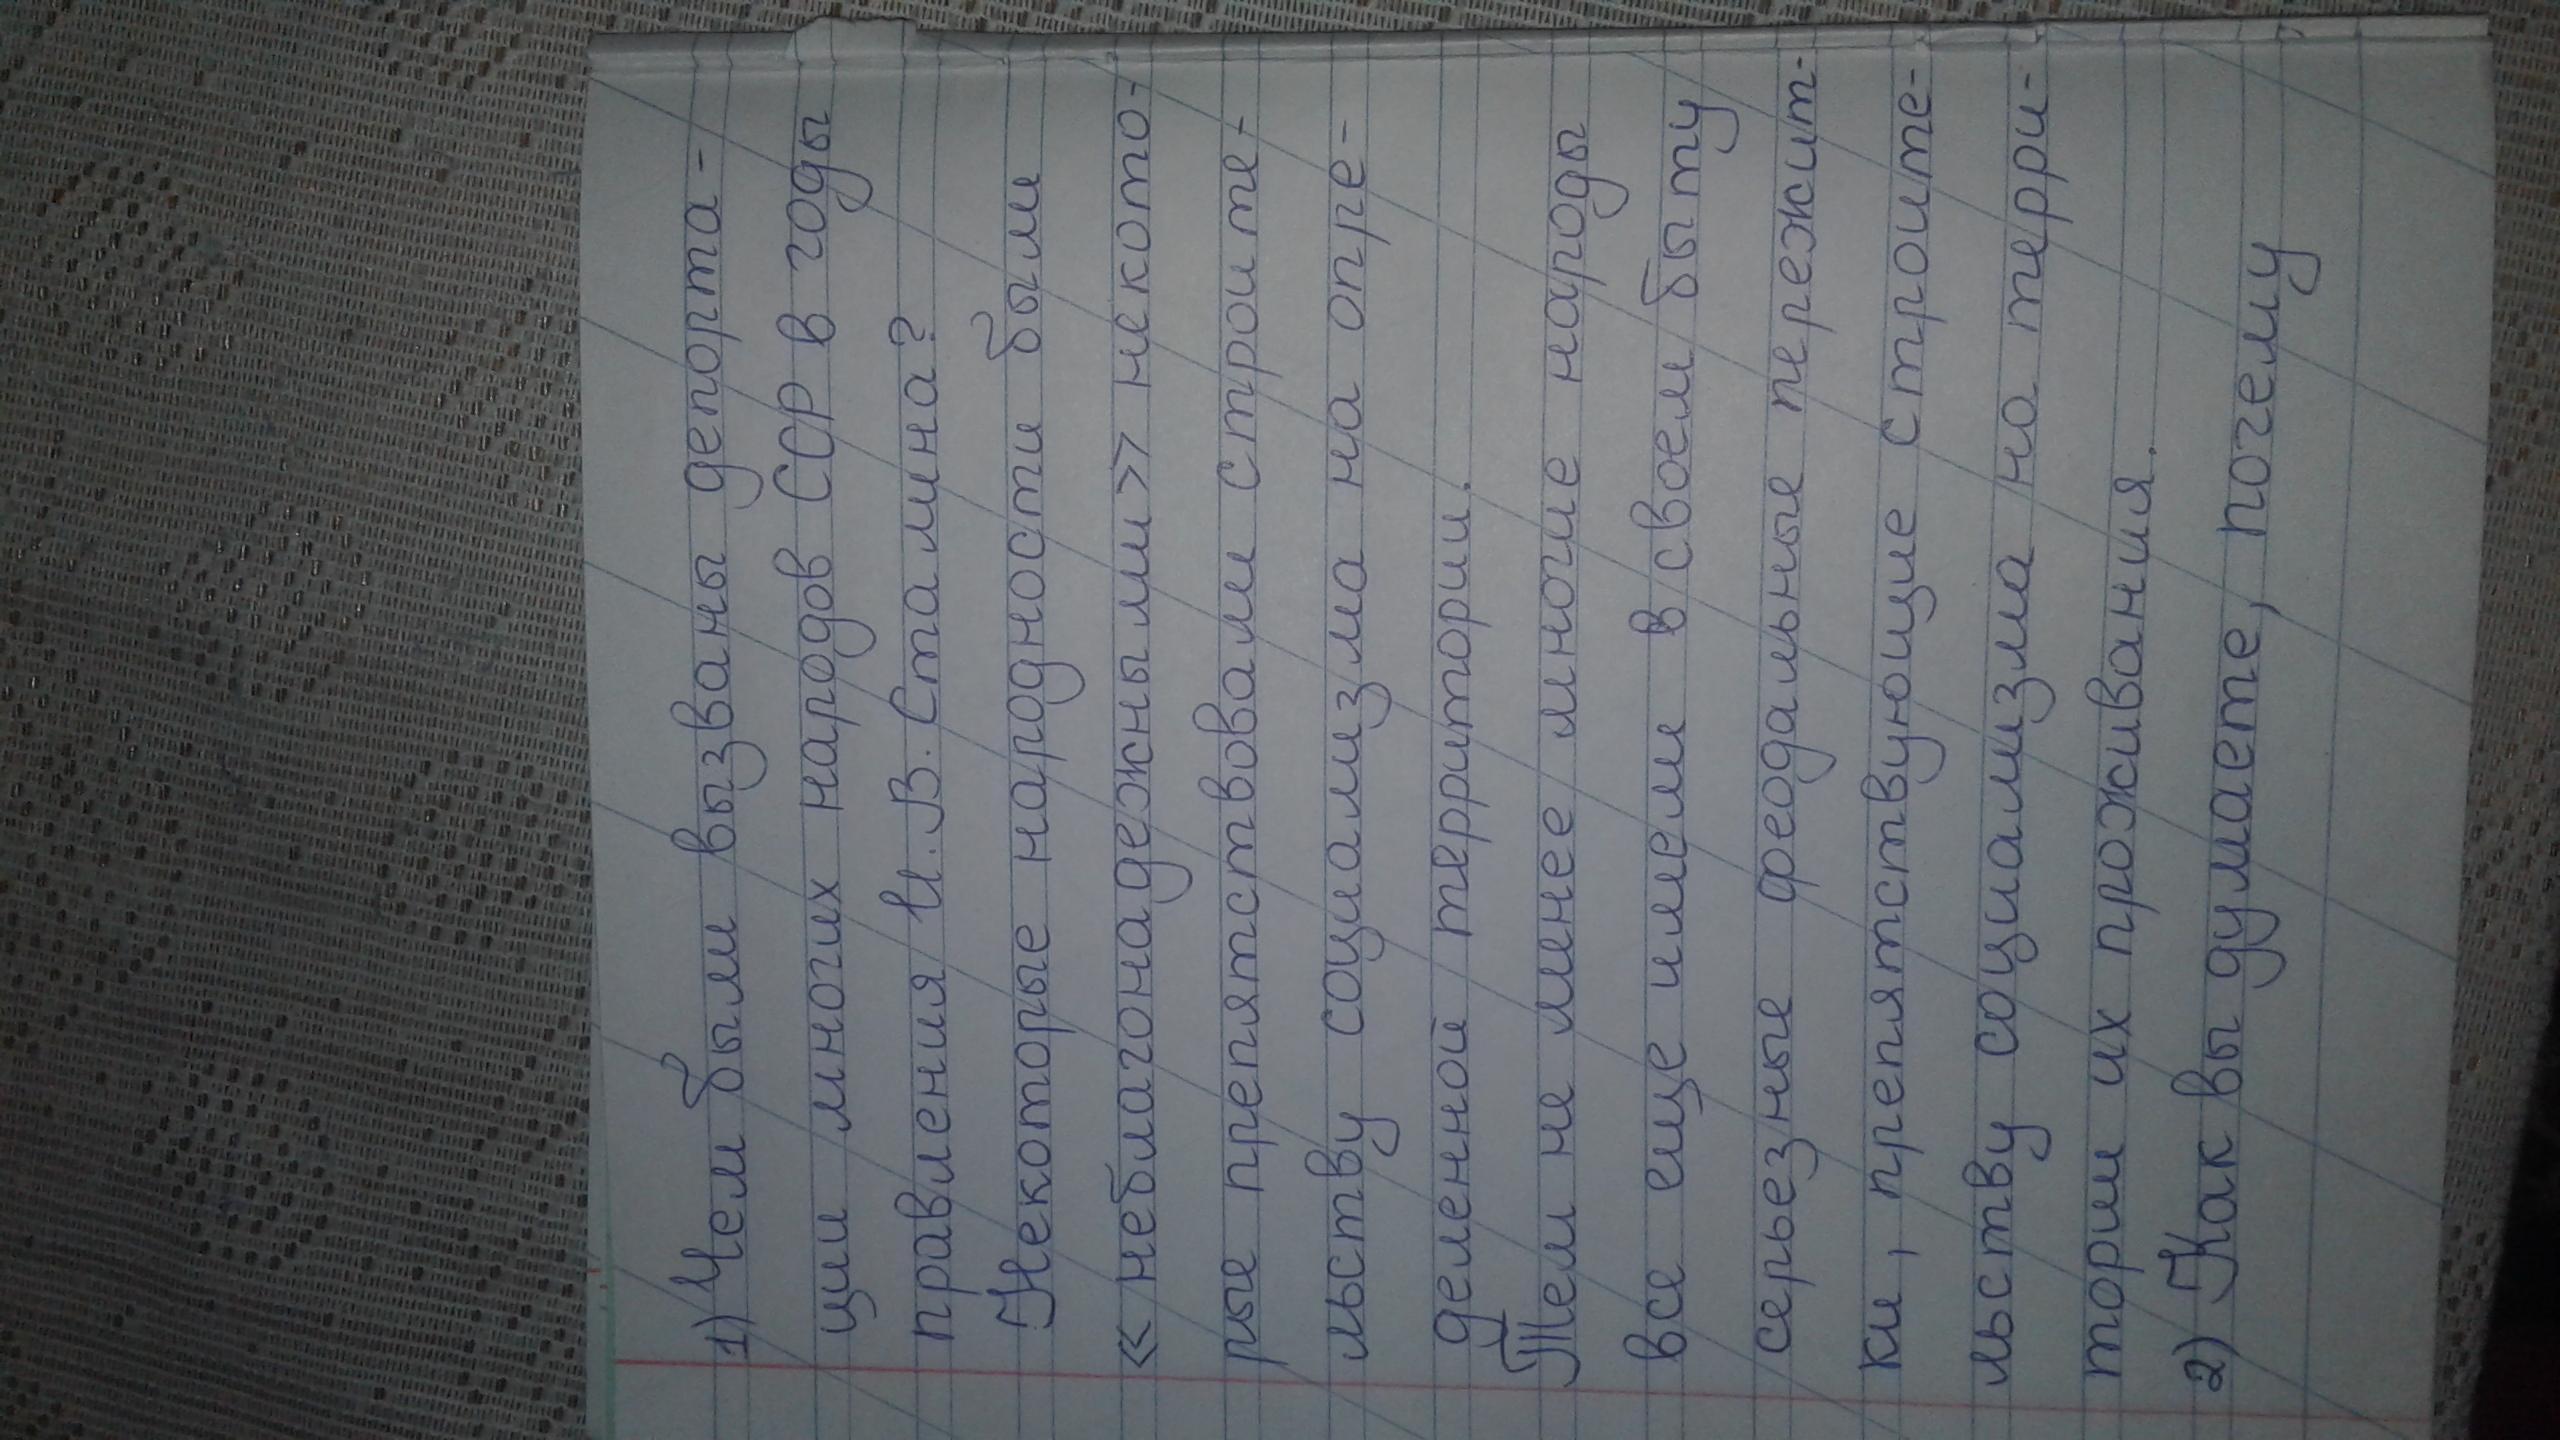 1) Чем были вызваны депорта-
ции многих народов ССР в годы
правления И.В. Сталина?
Некоторые народности были
«неблагонадежными» некото-
рые препятствовали строите-
льству социализма на опре-
деленной территории.
Тем не мнее многие народы
все еще имели в своем быту
серьезные феодальные пережит-
ки, препятствующие строите-
льству социализма на терри-
тории их проживания.
2) Как вы думаете, почему